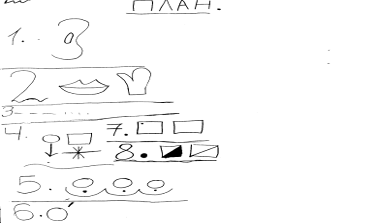 ПЛАН.
1.
2
3
4.
7.
8.
5.
6.